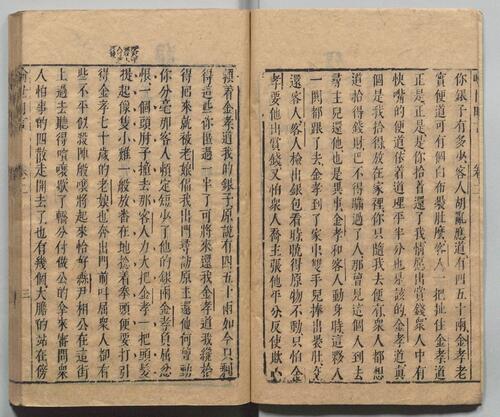 你銀子有多少客人胡亂應道有四五十兩金孝老
實便道可有個白布裹肚麼客人一把扯住金孝道
正是正是是你拾着還了我情愿出賞錢衆人中有
快嘴的便道依着道理平半分也是該的金孝道真
個是我拾得放在家裡你只隨我去便有衆人都想
道拾得錢財巴不得瞞過了人那曾見這個人到去
尋主兒還他也是異事金孝和客人動身時這夥人
一鬨都跟了去金孝到了家中雙手兒捧出裹肚交
還客人客人檢出銀包看時曉得原物不動只怕金
孝要他出賞錢又怕衆人喬主張他平分反使欺心
賴着金孝道我的銀子原說有四五十兩如今只剩
得這些你匿過一半了可將來還我金孝道我纔拾
得回來就被老娘逼我出門尋訪原主還他何曾動
你分毫那客人賴定短少了他的銀兩金孝負屈忿
恨一個頭肘子撞去那客人力大把金孝一把頭髮
提起像隻小雞一般放番在地捻着拳頭便要打引
得金孝七十歲的老娘也奔出門前叫屈衆人都有
些不平似殺陣般嚷將起來恰好縣尹相公在這街
上過去聽得喧嚷歇了轎分付做公的拿來審問衆
人怕事的四散走開去了也有幾個大膽的站在傍
喻世明言 卷二 三